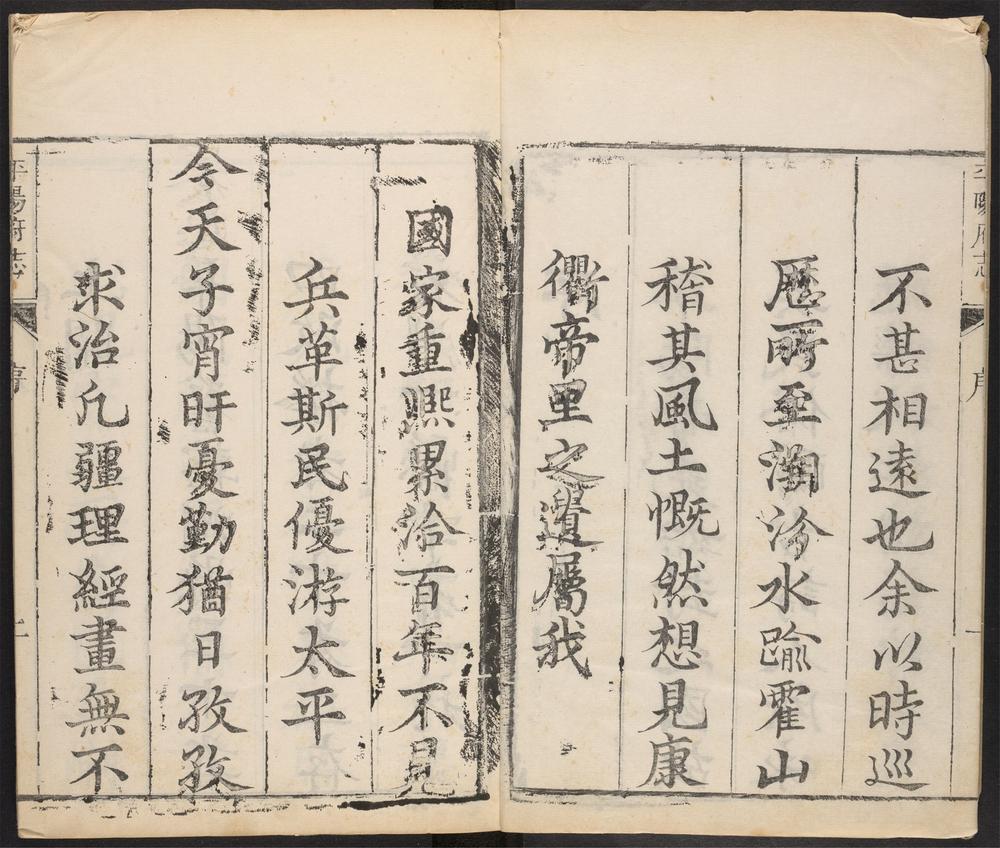 平陽府志
序
不甚相遠也余以時巡
歷所至瀰汾水踰霍山
稽其風土慨然想見康
衢帝里之遺屬我
國家重熈累洽百年不見
兵革斯民優游太平
今天子宵旰憂勤猶日孜孜
求治凢疆理經畫無不
平陽府志
序
二